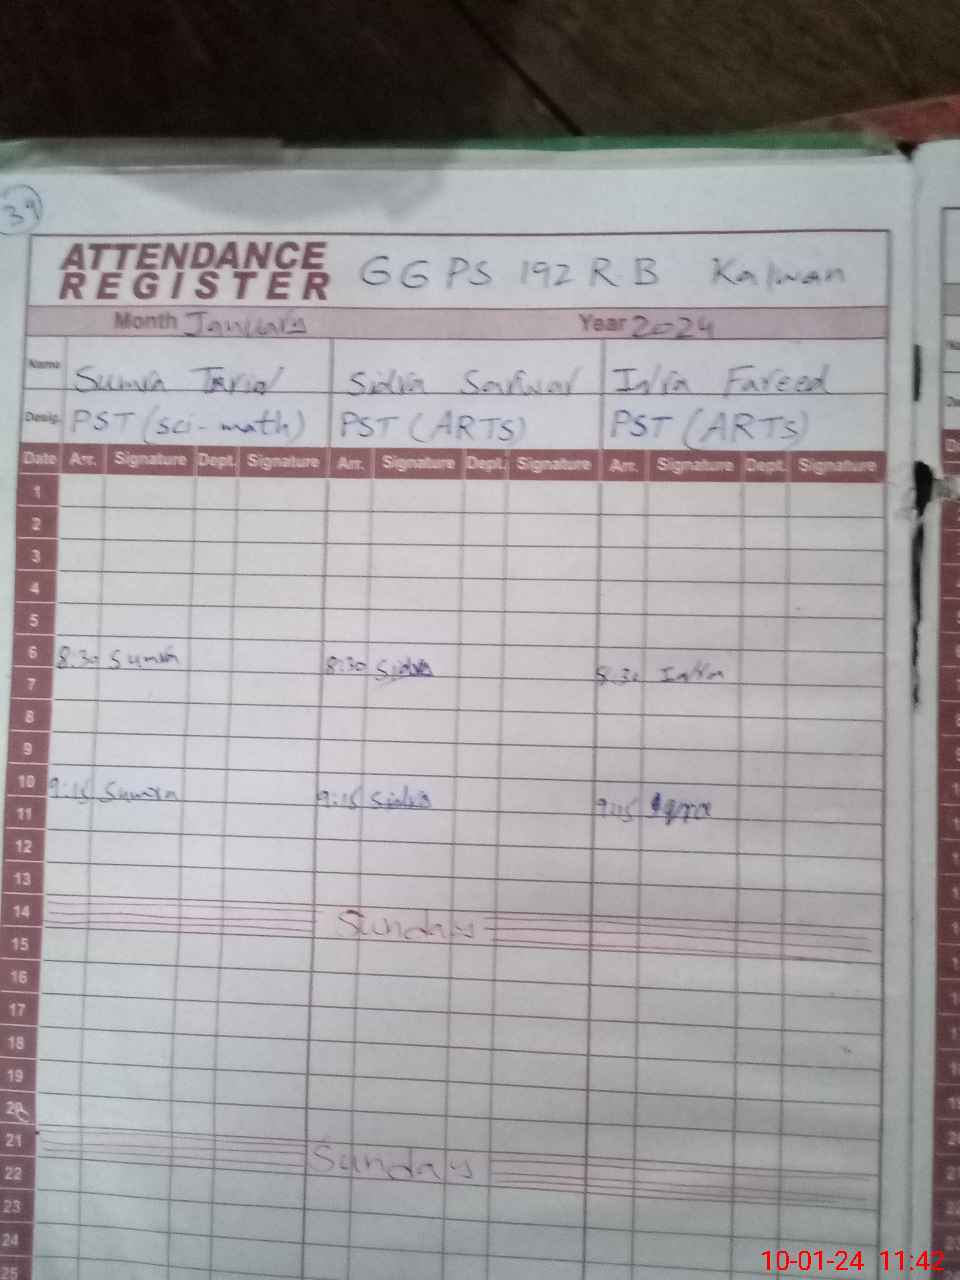 39
ATTENDANCE REGISTER GGPS 192 R.B Kalwan
Month January Year 2024
Name Sumra Tariq Sidra Sarwar Iqra Fareed
Desig. PST (sci-math) PST (ARTS) PST (ARTS)
Date Arr. Signature Dept. Signature Arr. Signature Dept. Signature Arr. Signature Dept. Signature
1
2
3
4
5
6 8:30 Sumra 8:30 Sidra 8:30 Iqra
7
8
9
10 9:15 Sumra 9:15 Sidra 9:15 Iqra
11
12
13
14 Sunday
15
16
17
18
19
20
21 Sunday
22
23
24
25
10-01-24 11:42